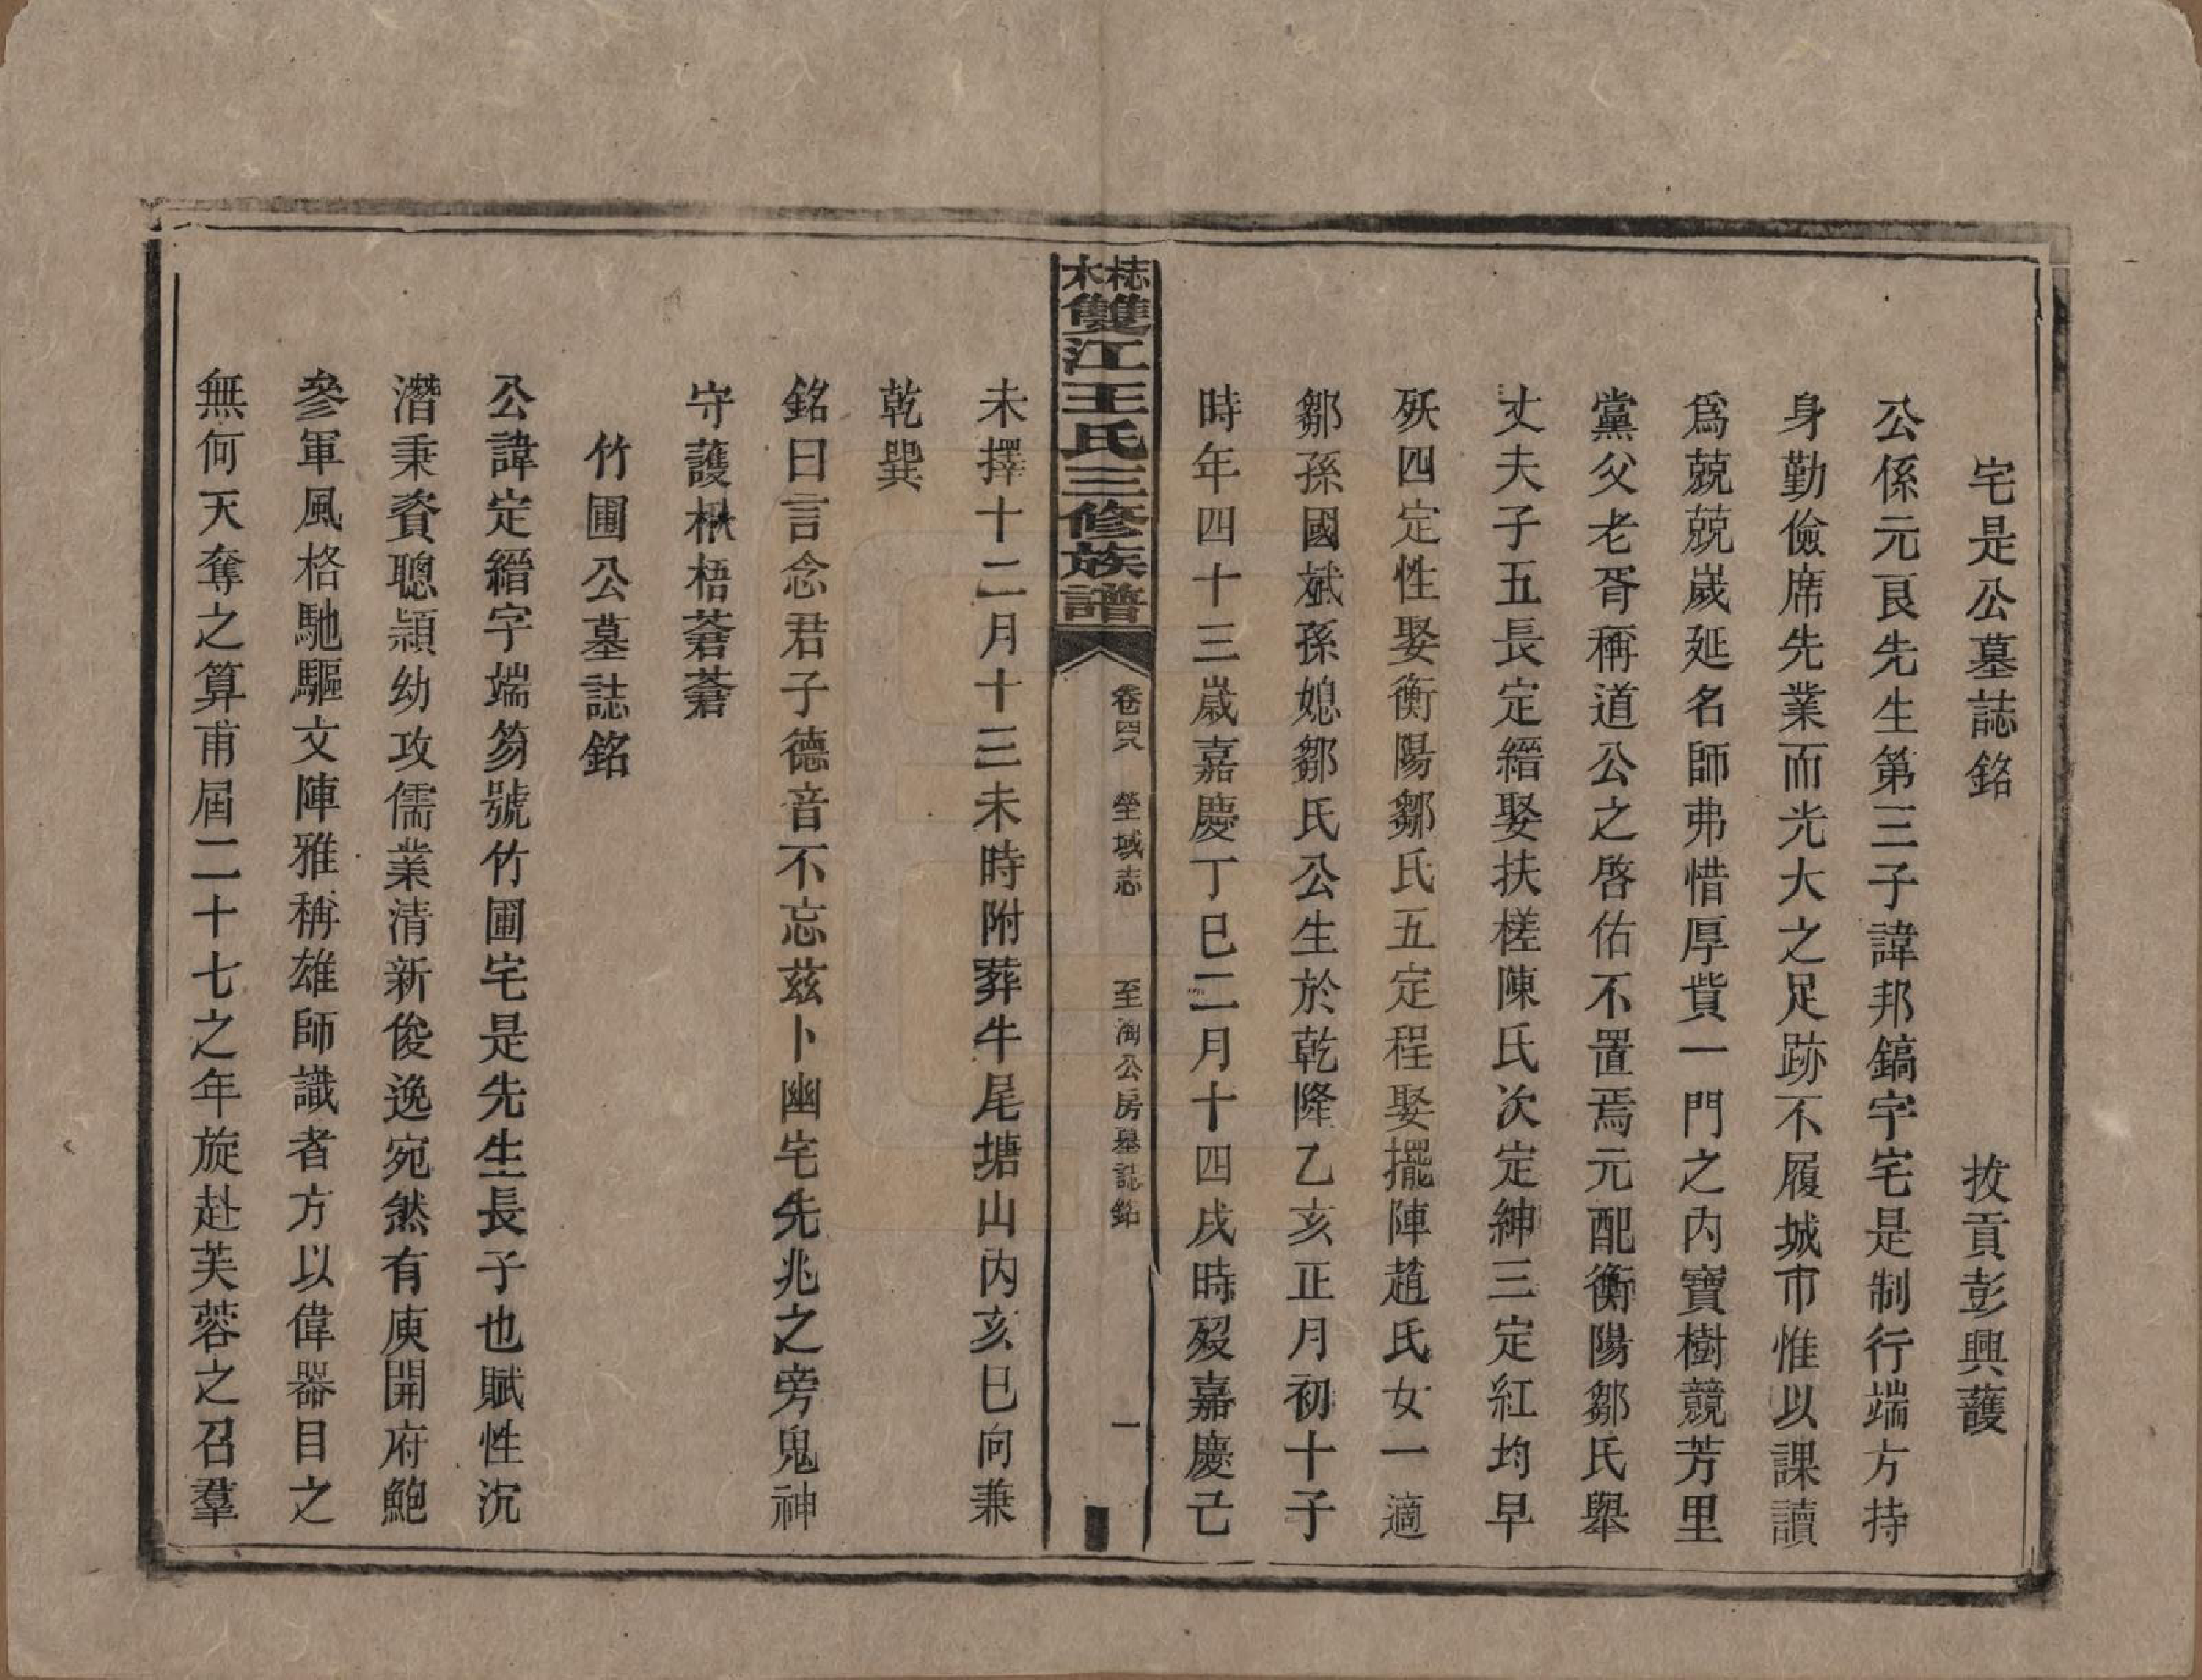 宅是公墓誌銘　拔貢彭興䕶
公係元良先生第三子諱邦鎬字宅是制行端方持
身勤儉席先業而光大之足跡不履城市惟以課讀
爲兢兢歲延名師弗惜厚貲一門之内寶樹競芳里
黨父老胥稱道公之啓佑不置焉元配衡陽鄒氏舉
丈夫子五長定縉娶扶槎陳氏次定紳三定紅均早
殀四定性娶衡陽鄒氏五定程娶擺陣趙氏女一適
鄒孫國斌孫媳鄒氏公生於乾隆乙亥正月初十子
時年四十三歲嘉慶丁巳二月十四戌時歿嘉慶己
桮木雙江王氏三修族譜
卷四八　塋域志　至淘公房墓誌銘　一
未擇十二月十三未時附葬牛尾塘山内亥巳向兼
乾巽
銘曰言念君子德音不忘兹卜幽宅先兆之旁鬼神
守護楸梧蒼蒼
竹圃公墓誌銘
公諱定縉字端笏號竹圃宅是先生長子也賦性沉
潛秉資聰穎幼攻儒業清新俊逸宛然有庾開府鮑
參軍風格馳驅文陣雅稱雄師識者方以偉器目之
無何天奪之算甫屆二十七之年旋赴芙蓉之召羣